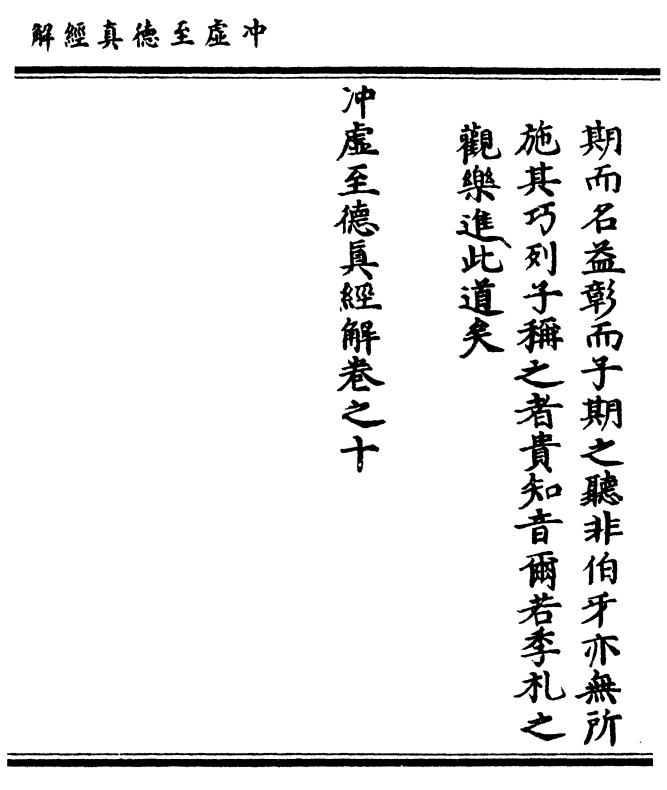 冲虛至德真經解
期而名益彰而子期之聽非伯牙亦無所
施其巧列子稱之者貴知音爾若季札之
觀樂進此道矣
冲虛至德眞經解卷之十